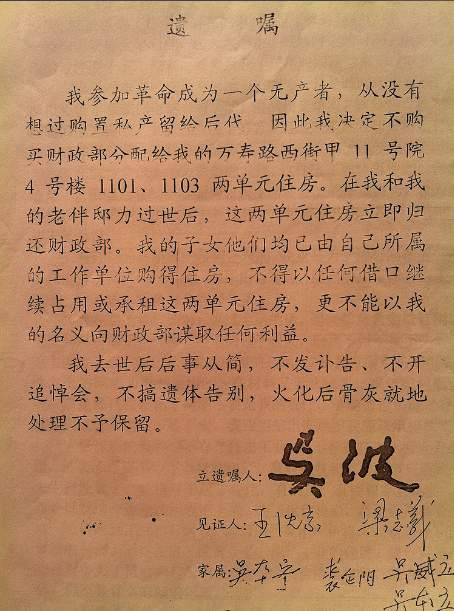 遗 嘱
我参加革命成为一个无产者，从没有
想过购置私产留给后代，因此我决定不购
买财政部分配给我的万寿路西街甲 11 号院
4 号楼 1101、1103 两单元住房。在我和我
的老伴邸力过世后，这两单元住房立即归
还财政部。我的子女他们均已由自己所属
的工作单位购得住房，不得以任何借口继
续占用或承租这两单元住房，更不能以我
的名义向财政部谋取任何利益。
我去世后后事从简，不发讣告、不开
追悼会，不搞遗体告别，火化后骨灰就地
处理不予保留。
立遗嘱人：吴波
见证人：王 梁志义
家属：吴 吴威立
吴本立